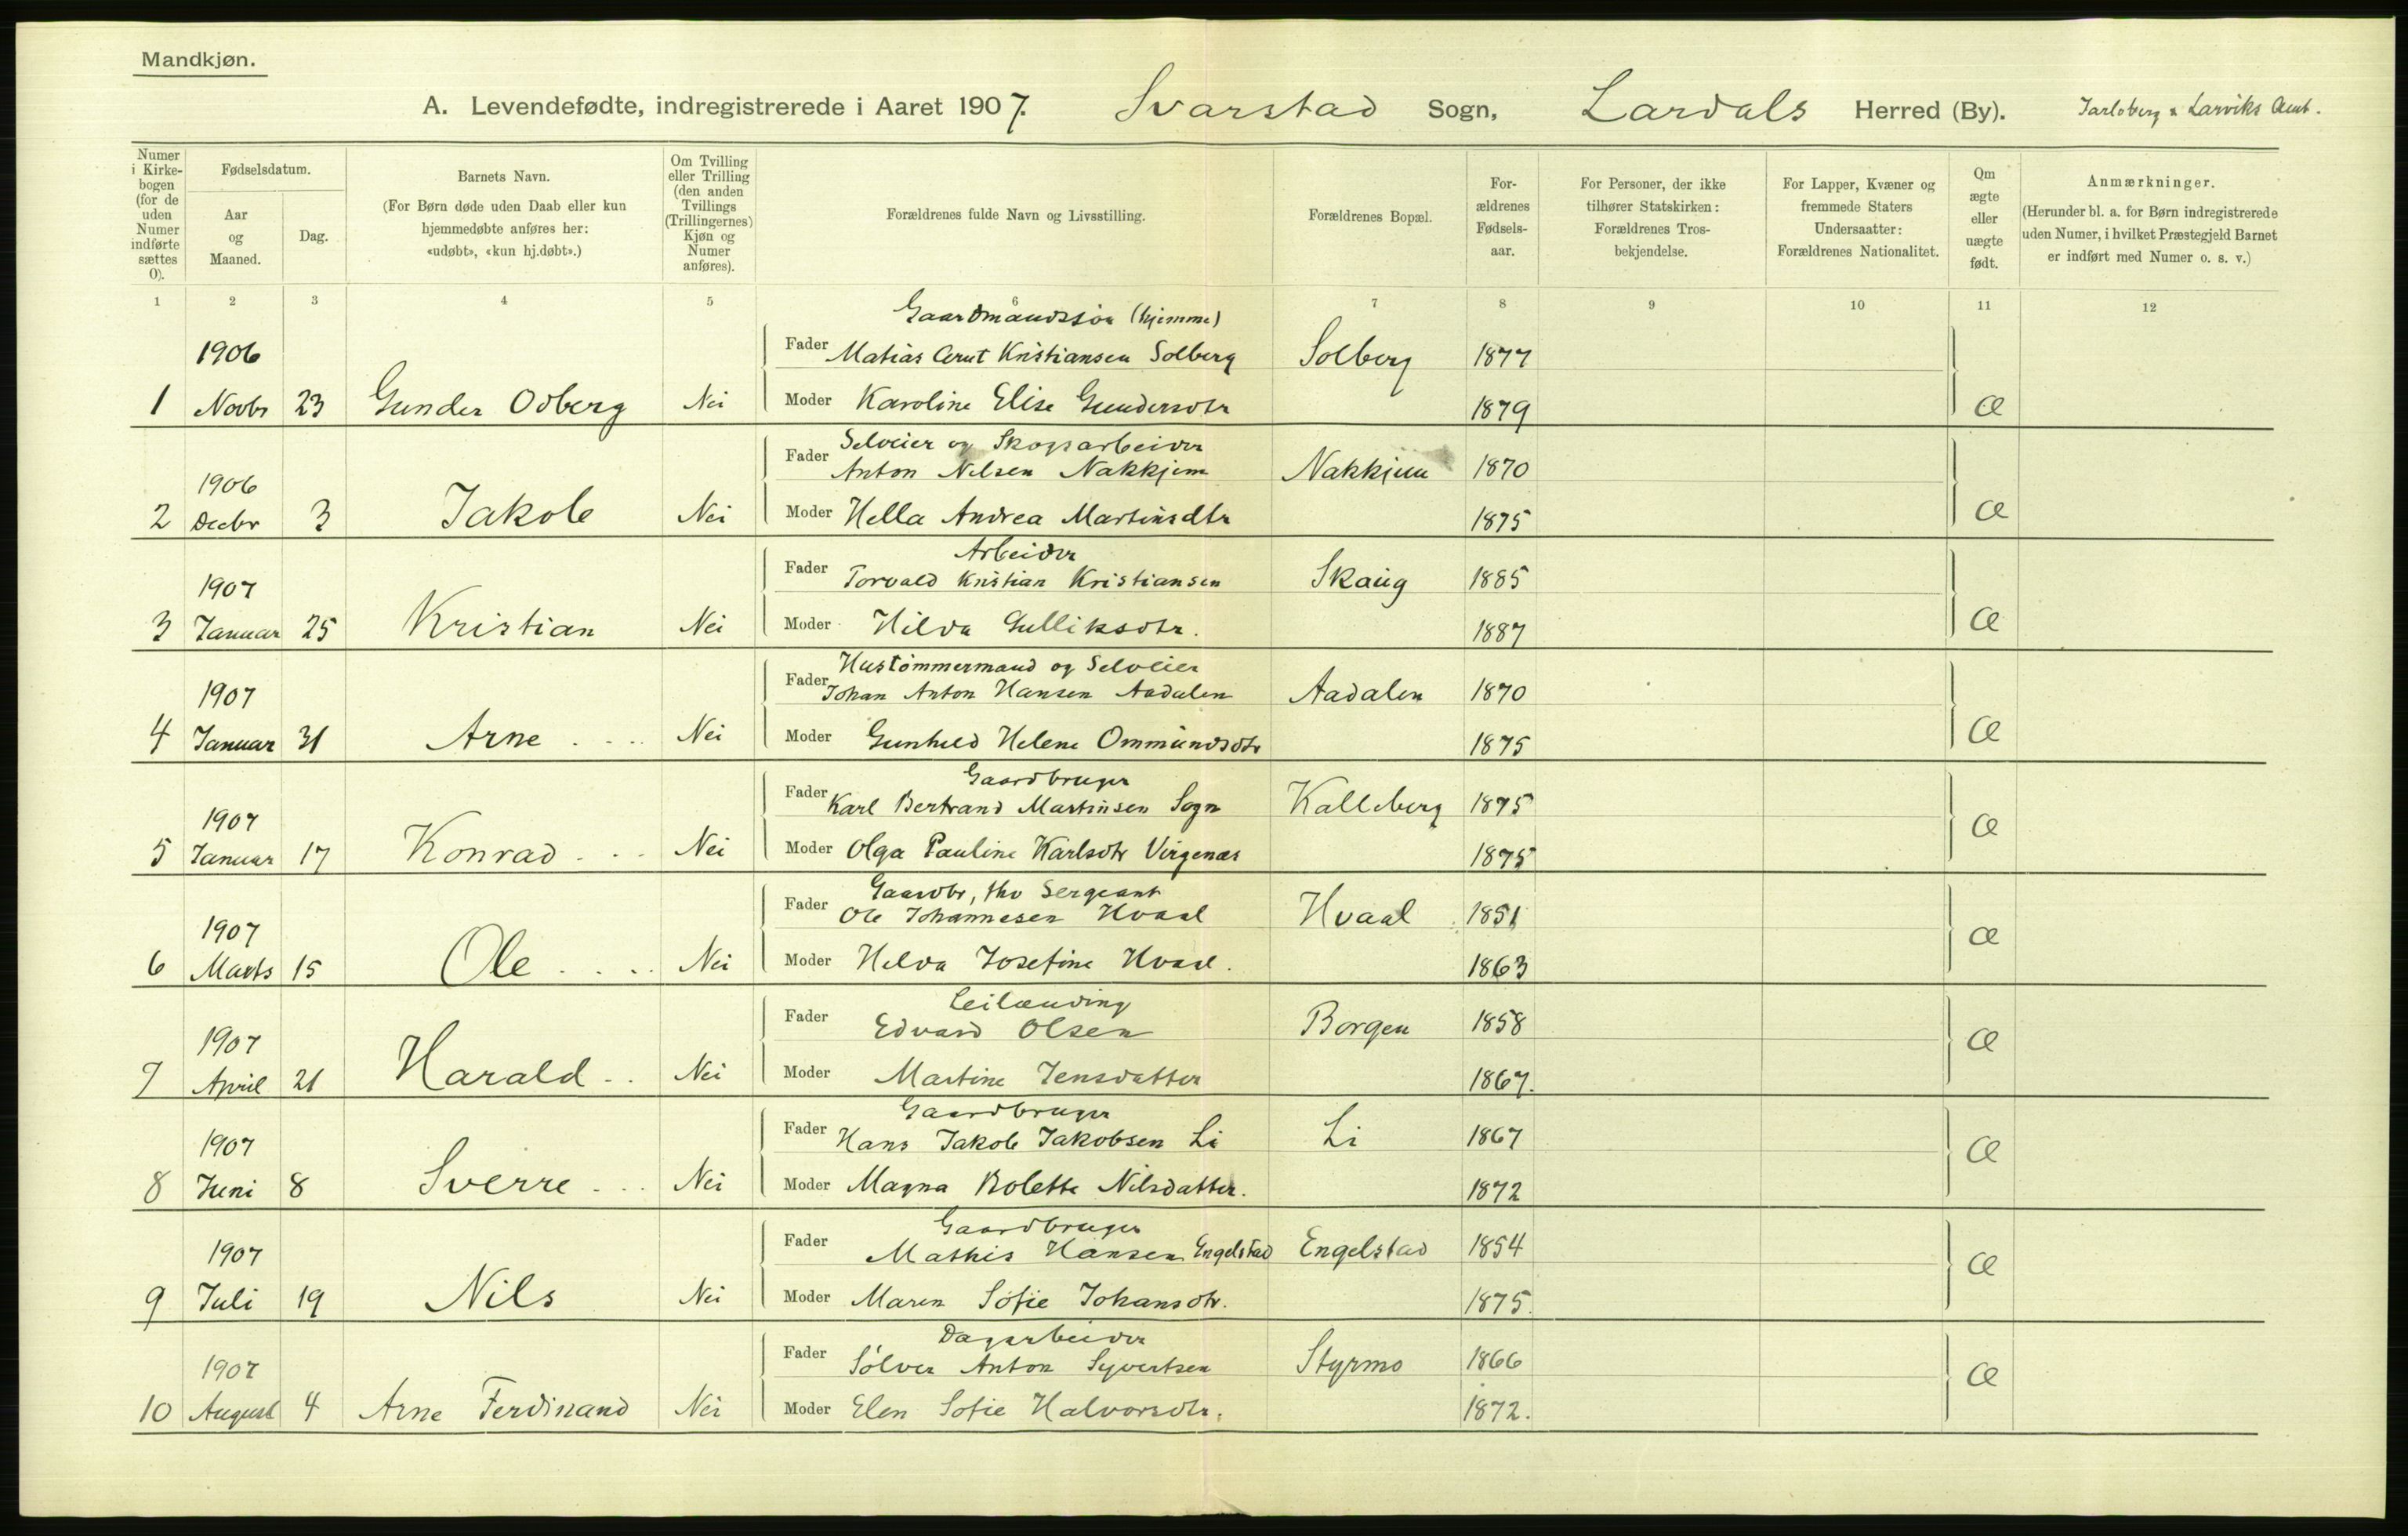 Mandkjøn.
A. Levendefødte, indregistrerede i Aaret 1907. Svarstad Sogn, Lardals Herred (By). Jarlsberg & Larviks Amt.
Numer i Kirkebogen (for de uden Numer indførte sættes 0).
Fødselsdatum.
Aar og Maaned.
Dag.
Barnets Navn.
(For Børn døde uden Daab eller kun
hjemmedøbte anføres her:
«udøbt», «kun hj.døbt».)
Om Tvilling
eller Trilling
(den anden
Tvillings
(Trillingernes)
Kjøn og
Numer
anføres).
Forældrenes fulde Navn og Livsstilling.
Forældrenes Bopæl.
For-
ældrenes
Fødsels-
aar.
For Personer, der ikke
tilhører Statskirken:
Forældrenes Tros-
bekjendelse.
For Lapper, Kvæner og
fremmede Staters
Undersaatter:
Forældrenes Nationalitet.
Om
ægte
eller
uægte
født.
Anmærkninger.
(Herunder bl. a. for Børn indregistrerede
uden Numer, i hvilket Præstegjeld Barnet
er indført med Numer o. s. v.)
1 2 3 4 5 6 7 8 9 10 11 12
Gaardmandssøn (hjemme)
1906 Fader Matias Kristiansen Solberg Solberg 1877
1 Novbr 23 Gunder Odberg Nei Moder Karoline Elise Gundersdtr 1879 Æ
Selveier og Skogsarbeider
1906 Fader Anton Nilsen Nakkjem Nakkjem 1870
2 Decbr 3 Jakob Nei Moder Hella Andrea Martinsdtr 1875 Æ
Arbeider
1907 Fader Torvald Kristian Kristiansen Skaug 1885
3 Januar 25 Kristian Nei Moder Hilda Gulliksdtr. 1887 Æ
Hustømmermand og Selveier
1907 Fader Johan Anton Hansen Aadalen Aadalen 1870
4 Januar 31 Arne Nei Moder Gunhild Helene Ommundsdtr 1875 Æ
Gaardbruger
1907 Fader Karl Bertrand Martinsen Sogn Kalleberg 1875
5 Januar 17 Konrad Nei Moder Olga Pauline Karlsdtr Virgenæs 1875 Æ
Gaardbr, fhv Sergeant
1907 Fader Ole Johannesen Hvaal Hvaal 1851
6 Marts 15 Ole Nei Moder Helda Josefine Hvaal. 1863 Æ
Leilænding
1907 Fader Edvard Olsen Borgen 1858
7 April 21 Harald Nei Moder Martine Jensdatter 1867. Æ
Gaardbruger
1907 Fader Hans Jakob Jakobsen Li Li 1867
8 Juni 8 Sverre Nei Moder Magna Bolette Nilsdatter. 1872 Æ
Gaardbruger
1907 Fader Mathis Hansen Engelstad Engelstad 1854
9 Juli 19 Nils Nei Moder Maren Sofie Johansdtr. 1875. Æ
Dagarbeider
1907 Fader Sölver Anton Syvertsen Styrmo 1866
10 August 4 Arne Ferdinand Nei Moder Elen Sofie Halvorsdtr. 1872. Æ